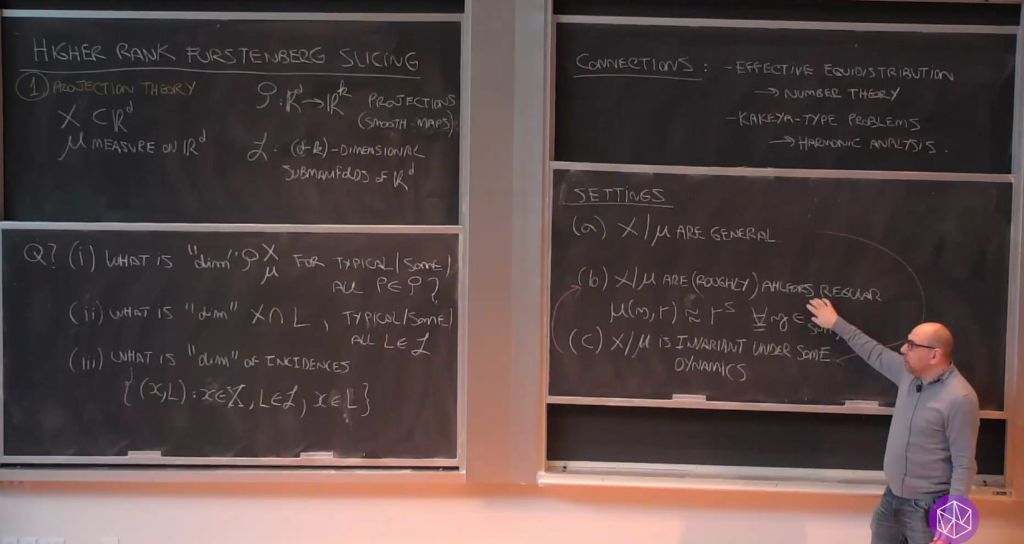 HIGHER RANK FURSTENBERG SLICING
① PROJECTION THEORY
X ⊂ ℝ^d
μ MEASURE ON ℝ^d
𝒫 : ℝ^d → ℝ^k PROJECTIONS
(SMOOTH MAPS)
ℒ : (d-k)-DIMENSIONAL
SUBMANIFOLDS OF ℝ^d
Q? (i) WHAT IS "dim" P X/μ FOR TYPICAL/SOME/
ALL P ∈ 𝒫 ?
(ii) WHAT IS "dim" X ∩ L , TYPICAL/SOME/
ALL L ∈ ℒ
(iii) WHAT IS "dim" OF INCIDENCES
{(x,L) : x ∈ X, L ∈ ℒ, x ∈ L}
CONNECTIONS : - EFFECTIVE EQUIDISTRIBUTION
→ NUMBER THEORY
- KAKEYA-TYPE PROBLEMS
→ HARMONIC ANALYSIS.
SETTINGS
(a) X/μ ARE GENERAL
(b) X/μ ARE (ROUGHLY) AHLFORS REGULAR
μ(x,r) ≈ r^s ∀x ∈
(c) X/μ IS INVARIANT UNDER SOME
DYNAMICS